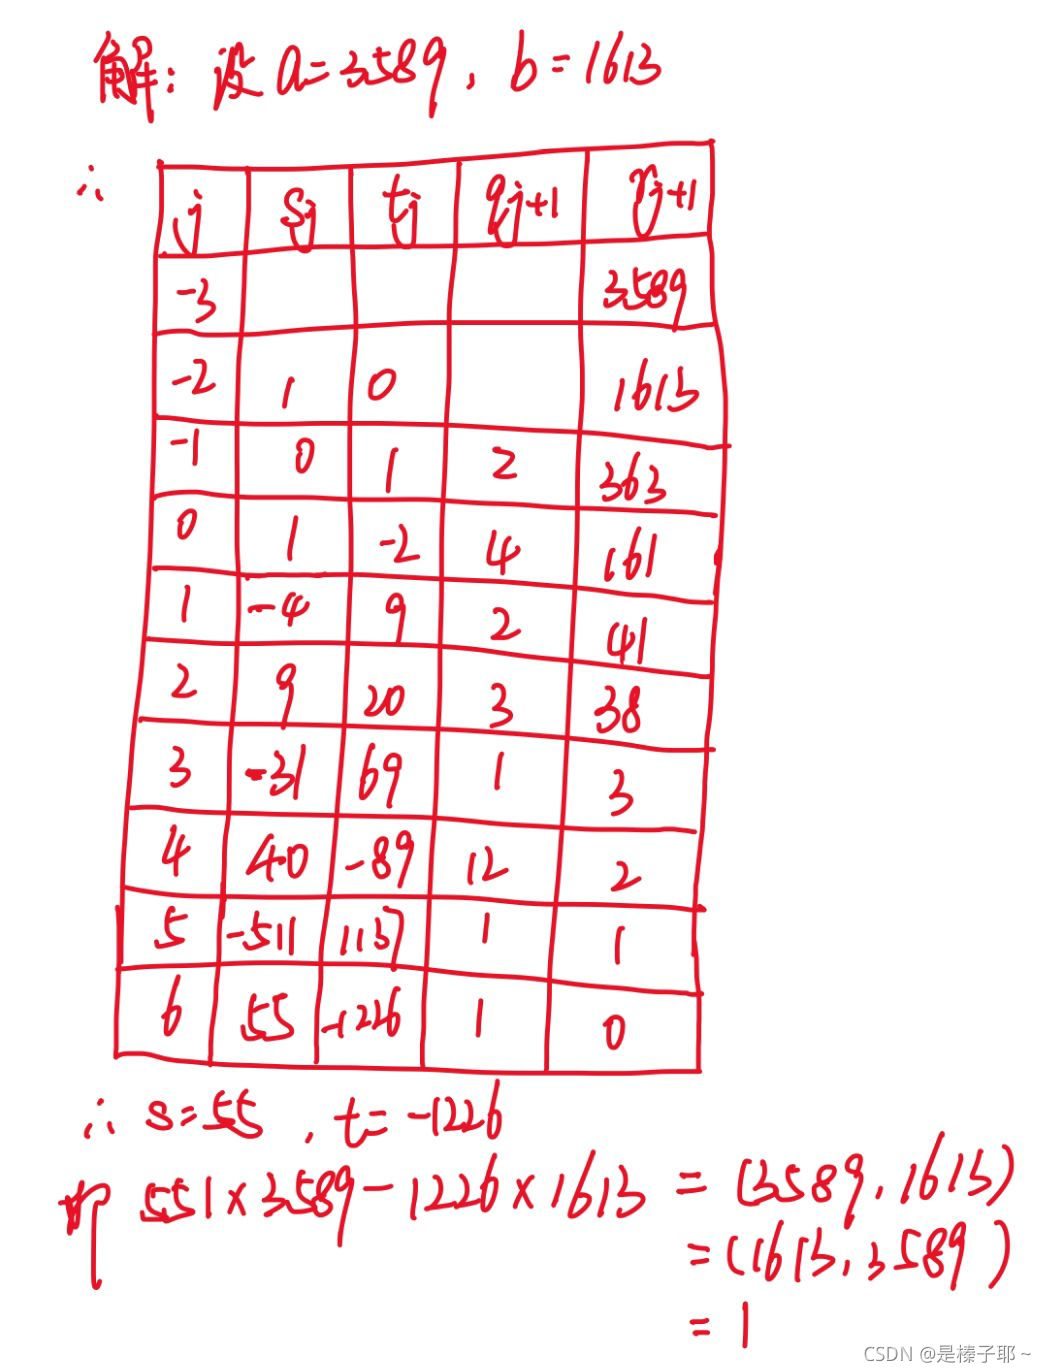 解: 设 a=3589, b=1613
∴ j sj tj qj+1 rj+1
-3 3589
-2 1 0 1613
-1 0 1 2 363
0 1 -2 4 161
1 -4 9 2 41
2 9 20 3 38
3 -31 69 1 3
4 40 -89 12 2
5 -511 1137 1 1
6 55 -1226 1 0
∴ s=55, t=-1226
551×3589-1226×1613 = (3589,1613)
=(1613,3589)
=1
CSDN @是榛子耶~